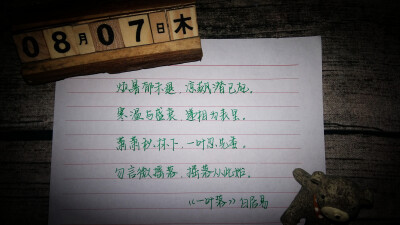 08月07日木
烦暑郁未退，凉飙潜已起。
寒温与盛衰，递相为表里。
萧萧秋林下，一叶忽先委。
勿言微摇落，摇落从此始。
《一叶落》白居易